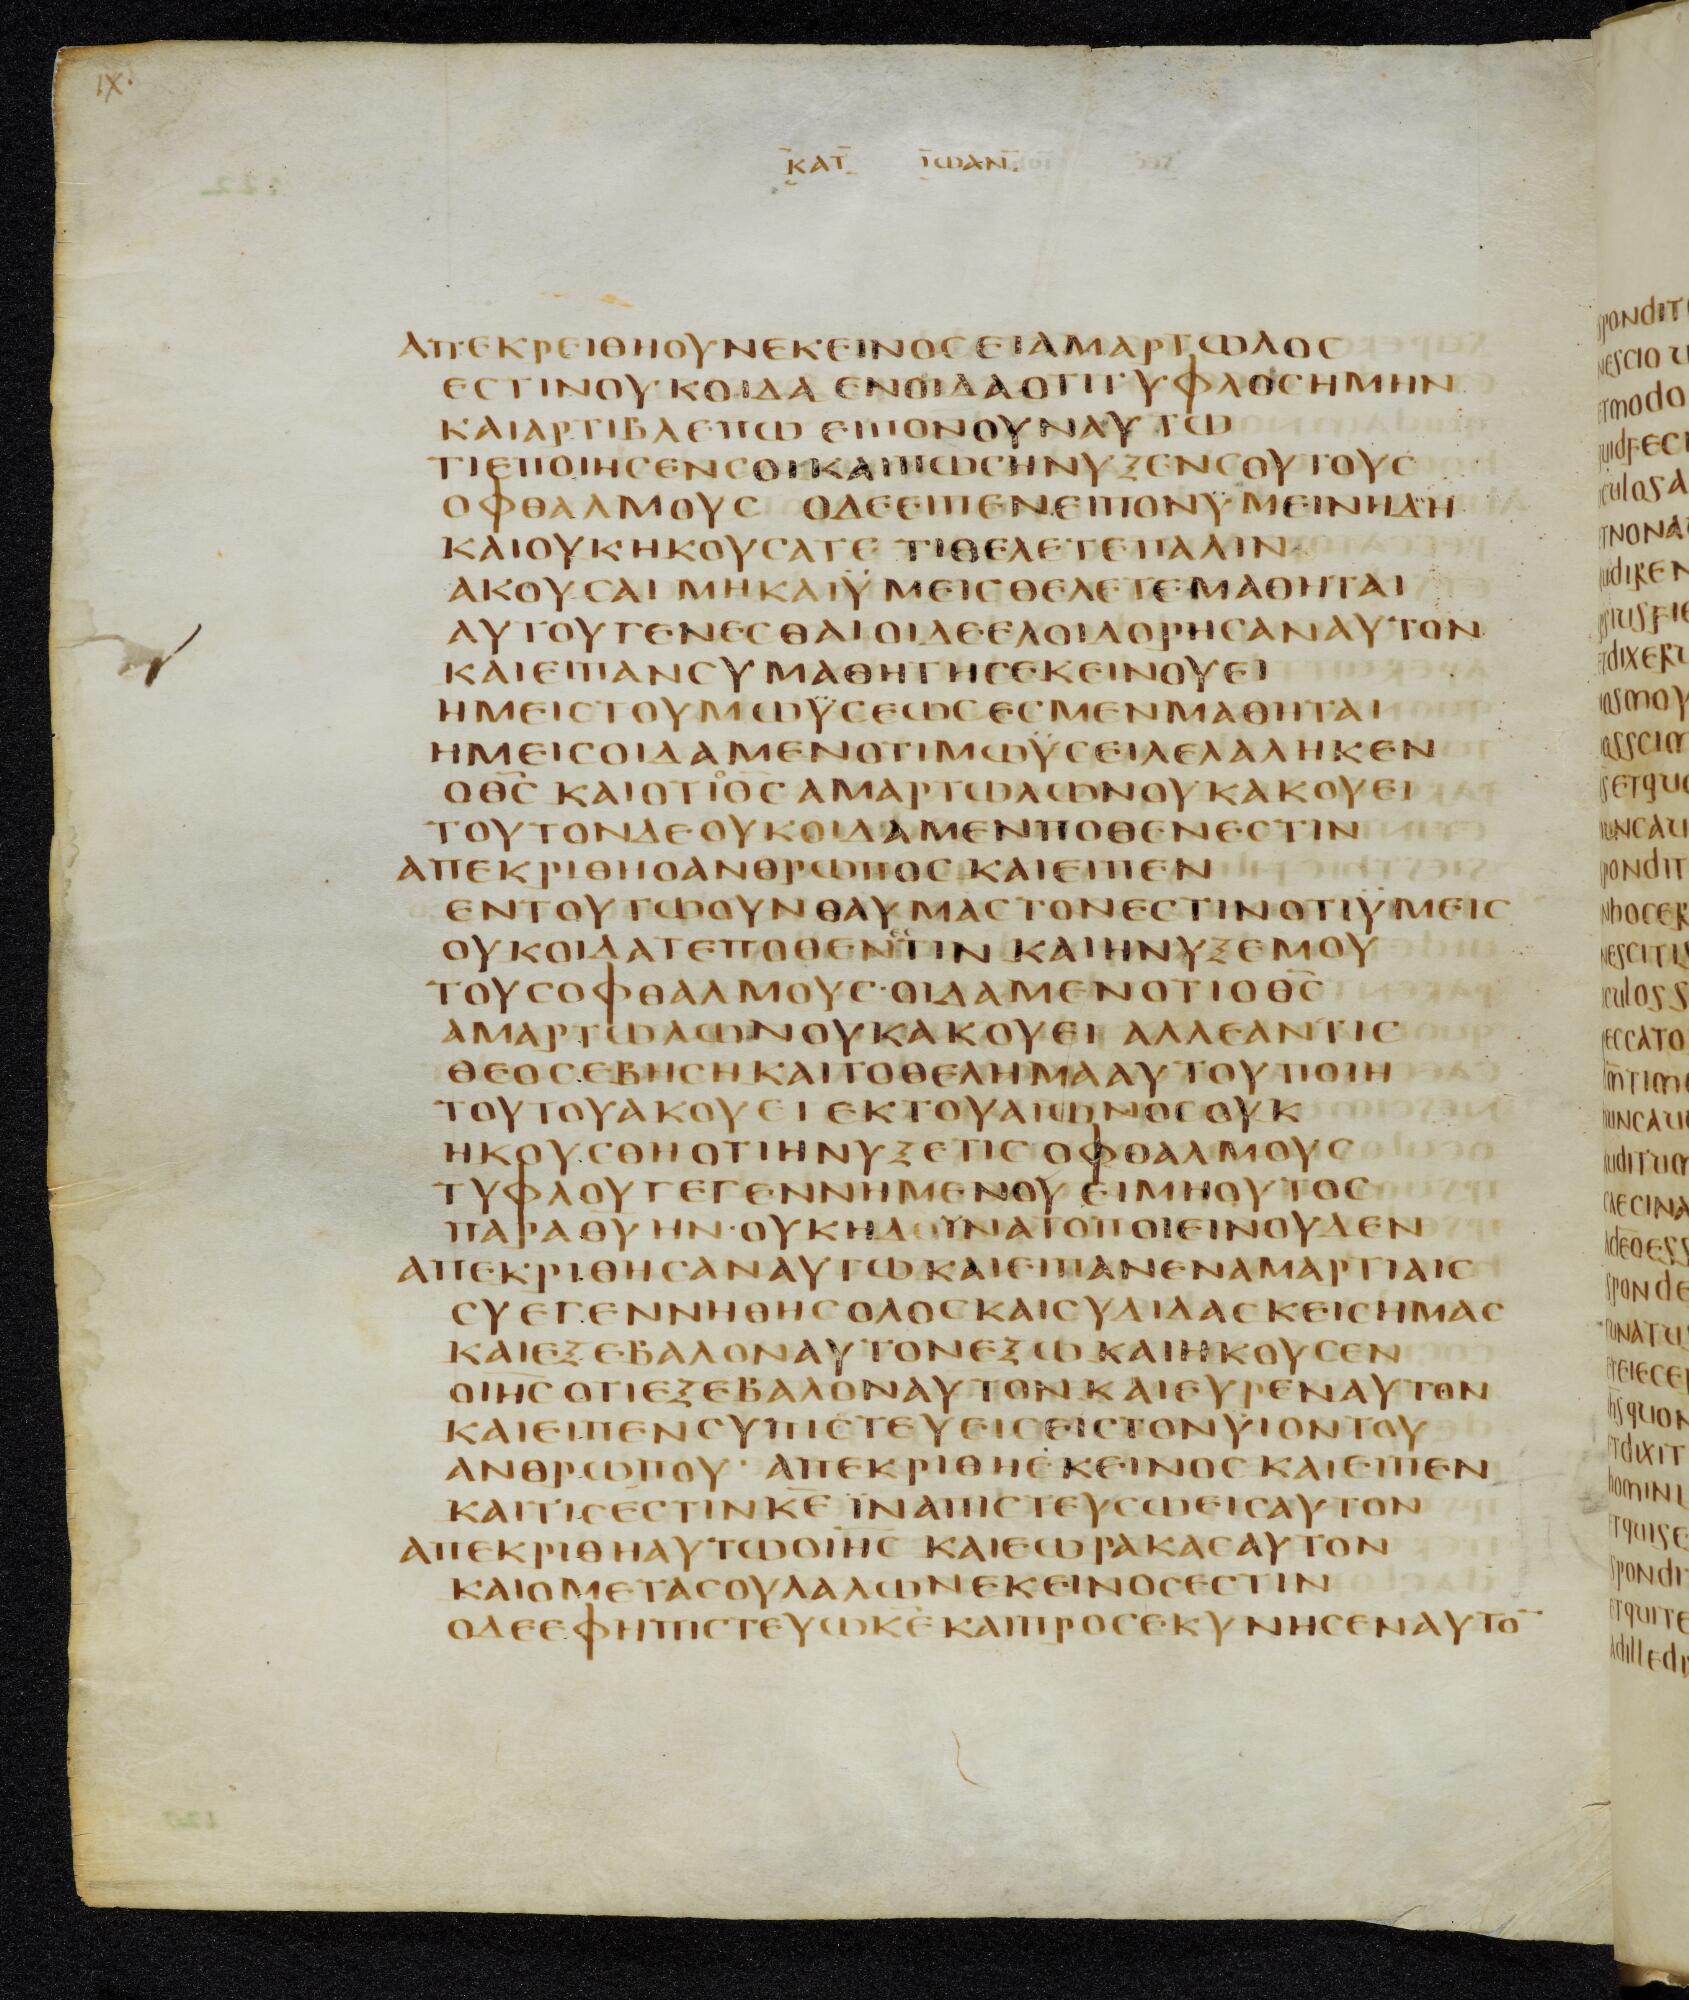 IX·
ΚΑΤ ΙΩΑΝ.
ΑΠΕΚΡΕΙΘΗΟΥΝΕΚΕΙΝΟΣΕΙΑΜΑΡΤΩΛΟΣ
ΕΣΤΙΝΟΥΚΟΙΔΑ ΕΝΟΙΔΑΟΤΙΤΥΦΛΟΣΗΜΗΝ
ΚΑΙΑΡΤΙΒΛΕΠΩ ΕΙΠΟΝΟΥΝΑΥΤΩ
ΤΙΕΠΟΙΗΣΕΝΣΟΙΚΑΙΠΩΣΗΝΥΞΕΝΣΟΥΤΟΥΣ
ΟΦΘΑΛΜΟΥΣ ΟΔΕΕΙΠΕΝΕΙΠΟΝΫΜΕΙΝΗΔΗ
ΚΑΙΟΥΚΗΚΟΥΣΑΤΕ ΤΙΘΕΛΕΤΕΠΑΛΙΝ
ΑΚΟΥΣΑΙ ΜΗΚΑΙΫΜΕΙΣΘΕΛΕΤΕΜΑΘΗΤΑΙ
ΑΥΤΟΥΓΕΝΕΣΘΑΙ ΟΙΔΕΕΛΟΙΔΟΡΗΣΑΝΑΥΤΟΝ
ΚΑΙΕΙΠΑΝΣΥΜΑΘΗΤΗΣΕΚΕΙΝΟΥΕΙ
ΗΜΕΙΣΤΟΥΜΩΫΣΕΩΣΕΣΜΕΝΜΑΘΗΤΑΙ
ΗΜΕΙΣΟΙΔΑΜΕΝΟΤΙΜΩΫΣΕΙΛΕΛΑΛΗΚΕΝ
ΟΘ̅Σ̅ ΚΑΙΟΤΙΟΘ̅Σ̅ΑΜΑΡΤΩΛΩΝΟΥΚΑΚΟΥΕΙ
ΤΟΥΤΟΝΔΕΟΥΚΟΙΔΑΜΕΝΠΟΘΕΝΕΣΤΙΝ
ΑΠΕΚΡΙΘΗΟΑΝΘΡΩΠΟΣΚΑΙΕΙΠΕΝ
ΕΝΤΟΥΤΩΟΥΝΘΑΥΜΑΣΤΟΝΕΣΤΙΝΟΤΙΫΜΕΙΣ
ΟΥΚΟΙΔΑΤΕΠΟΘΕΝΕΣΤΙΝ ΚΑΙΗΝΥΞΕΜΟΥ
ΤΟΥΣΟΦΘΑΛΜΟΥΣ·ΟΙΔΑΜΕΝΟΤΙΟΘ̅Σ̅
ΑΜΑΡΤΩΛΩΝΟΥΚΑΚΟΥΕΙ ΑΛΛΕΑΝΤΙΣ
ΘΕΟΣΕΒΗΣΗΚΑΙΤΟΘΕΛΗΜΑΑΥΤΟΥΠΟΙΗ
ΤΟΥΤΟΥΑΚΟΥΕΙ ΕΚΤΟΥΑΙΩΝΟΣΟΥΚ
ΗΚΟΥΣΘΗΟΤΙΗΝΥΞΕΤΙΣ ΟΦΘΑΛΜΟΥΣ
ΤΥΦΛΟΥΓΕΓΕΝΝΗΜΕΝΟΥ ΕΙΜΗΟΥΤΟΣ
ΠΑΡΑΘ̅Υ̅ΗΝ·ΟΥΚΗΔΥΝΑΤΟΠΟΙΕΙΝΟΥΔΕΝ
ΑΠΕΚΡΙΘΗΣΑΝΑΥΤΩΚΑΙΕΙΠΑΝΕΝΑΜΑΡΤΙΑΙΣ
ΣΥΕΓΕΝΝΗΘΗΣΟΛΟΣΚΑΙΣΥΔΙΔΑΣΚΕΙΣΗΜΑΣ
ΚΑΙΕΞΕΒΑΛΟΝΑΥΤΟΝΕΞΩ ΚΑΙΗΚΟΥΣΕΝ
ΟΙΗ̅Σ̅ΟΤΙΕΞΕΒΑΛΟΝΑΥΤΟΝΚΑΙΕΥΡΕΝΑΥΤΟΝ
ΚΑΙΕΙΠΕΝΣΥΠΙΣΤΕΥΕΙΣΕΙΣΤΟΝΥΙΟΝΤΟΥ
ΑΝΘΡΩΠΟΥ· ΑΠΕΚΡΙΘΗΕΚΕΙΝΟΣΚΑΙΕΙΠΕΝ
ΚΑΙΤΙΣΕΣΤΙΝΚ̅Ε̅ ΪΝΑΠΙΣΤΕΥΣΩΕΙΣΑΥΤΟΝ
ΑΠΕΚΡΙΘΗΑΥΤΩΟΙΗ̅Σ̅ ΚΑΙΕΩΡΑΚΑΣΑΥΤΟΝ
ΚΑΙΟΜΕΤΑΣΟΥΛΑΛΩΝΕΚΕΙΝΟΣΕΣΤΙΝ
ΟΔΕΕΦΗΠΙΣΤΕΥΩΚ̅Ε̅ΚΑΙΠΡΟΣΕΚΥΝΗΣΕΝΑΥΤΟ̅